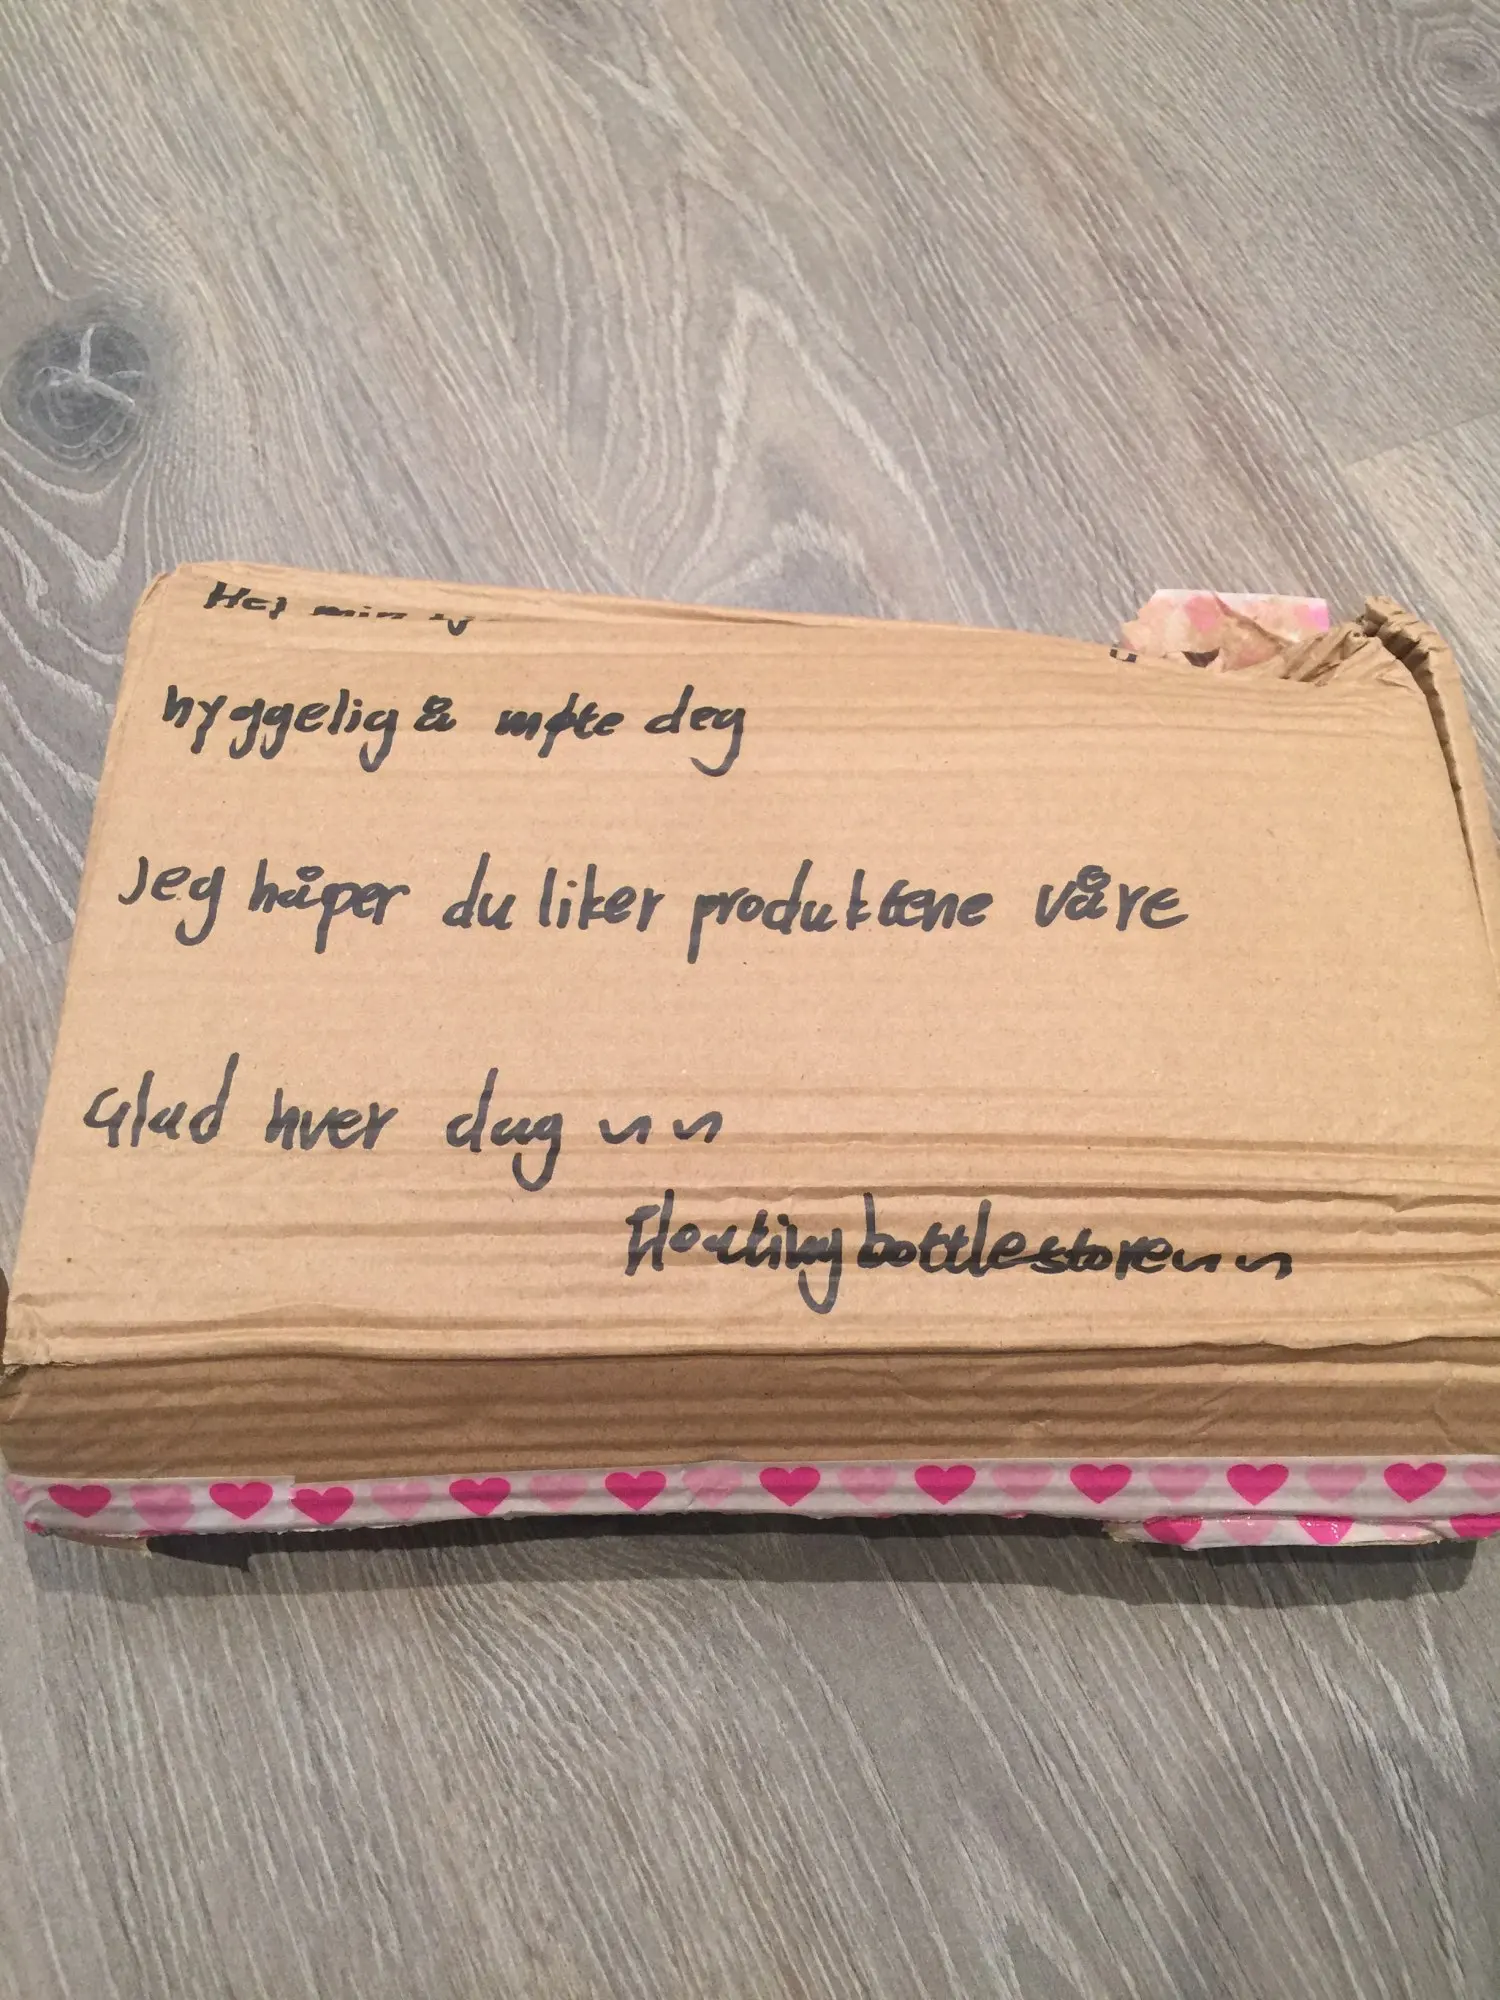 Hej min
hyggelig å møte deg
Jeg håper du liker produktene våre
Glad hver dag ~~
Floating bottle store ~~